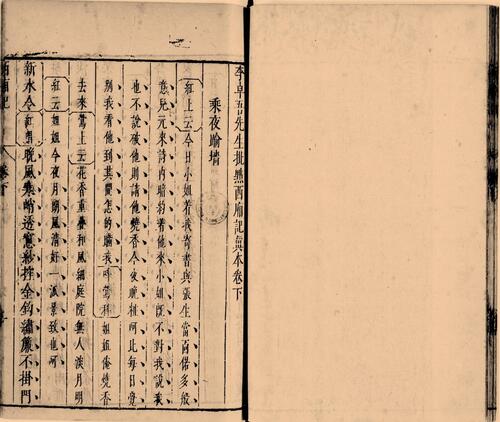 李卓吾先生批點西廂記真本卷下
乘夜踰墻
紅上云今日小姐着我寄書與張生當面偌多般
意兒元來詩內暗約着他來小姐既不對我說我
也不說破他則請他燒香今夜晚粧呵比每日覺
別我看他到其間怎的瞞我 紅喚科 姐姐俺燒香
去來鶯上云花香重疊和風細庭院無人淡月明
紅云姐姐今夜月朗風清好一派景致也呵
新水令 紅唱晚風寒峭透窻紗控金鈎繡簾不掛門
西廂記 卷下